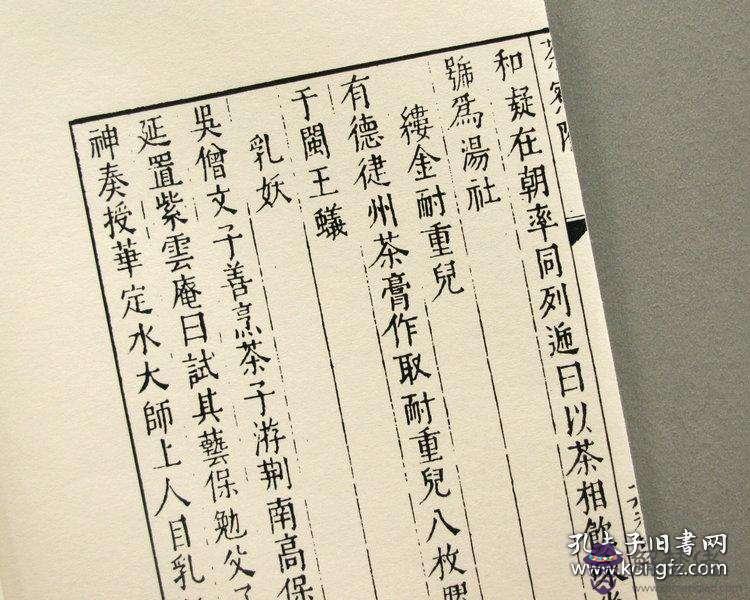 茶
和疑在朝率同列遞日以茶相飲
號爲湯社
縷金耐重兒
有德建州茶膏作取耐重兒八枚
于閩王蟻
乳妖
吳僧文子善烹茶子游荆南高保
延置紫雲庵日試其藝保勉父子
神奏授華定水大師上人目乳
孔夫子旧书网
www.kongfz.com